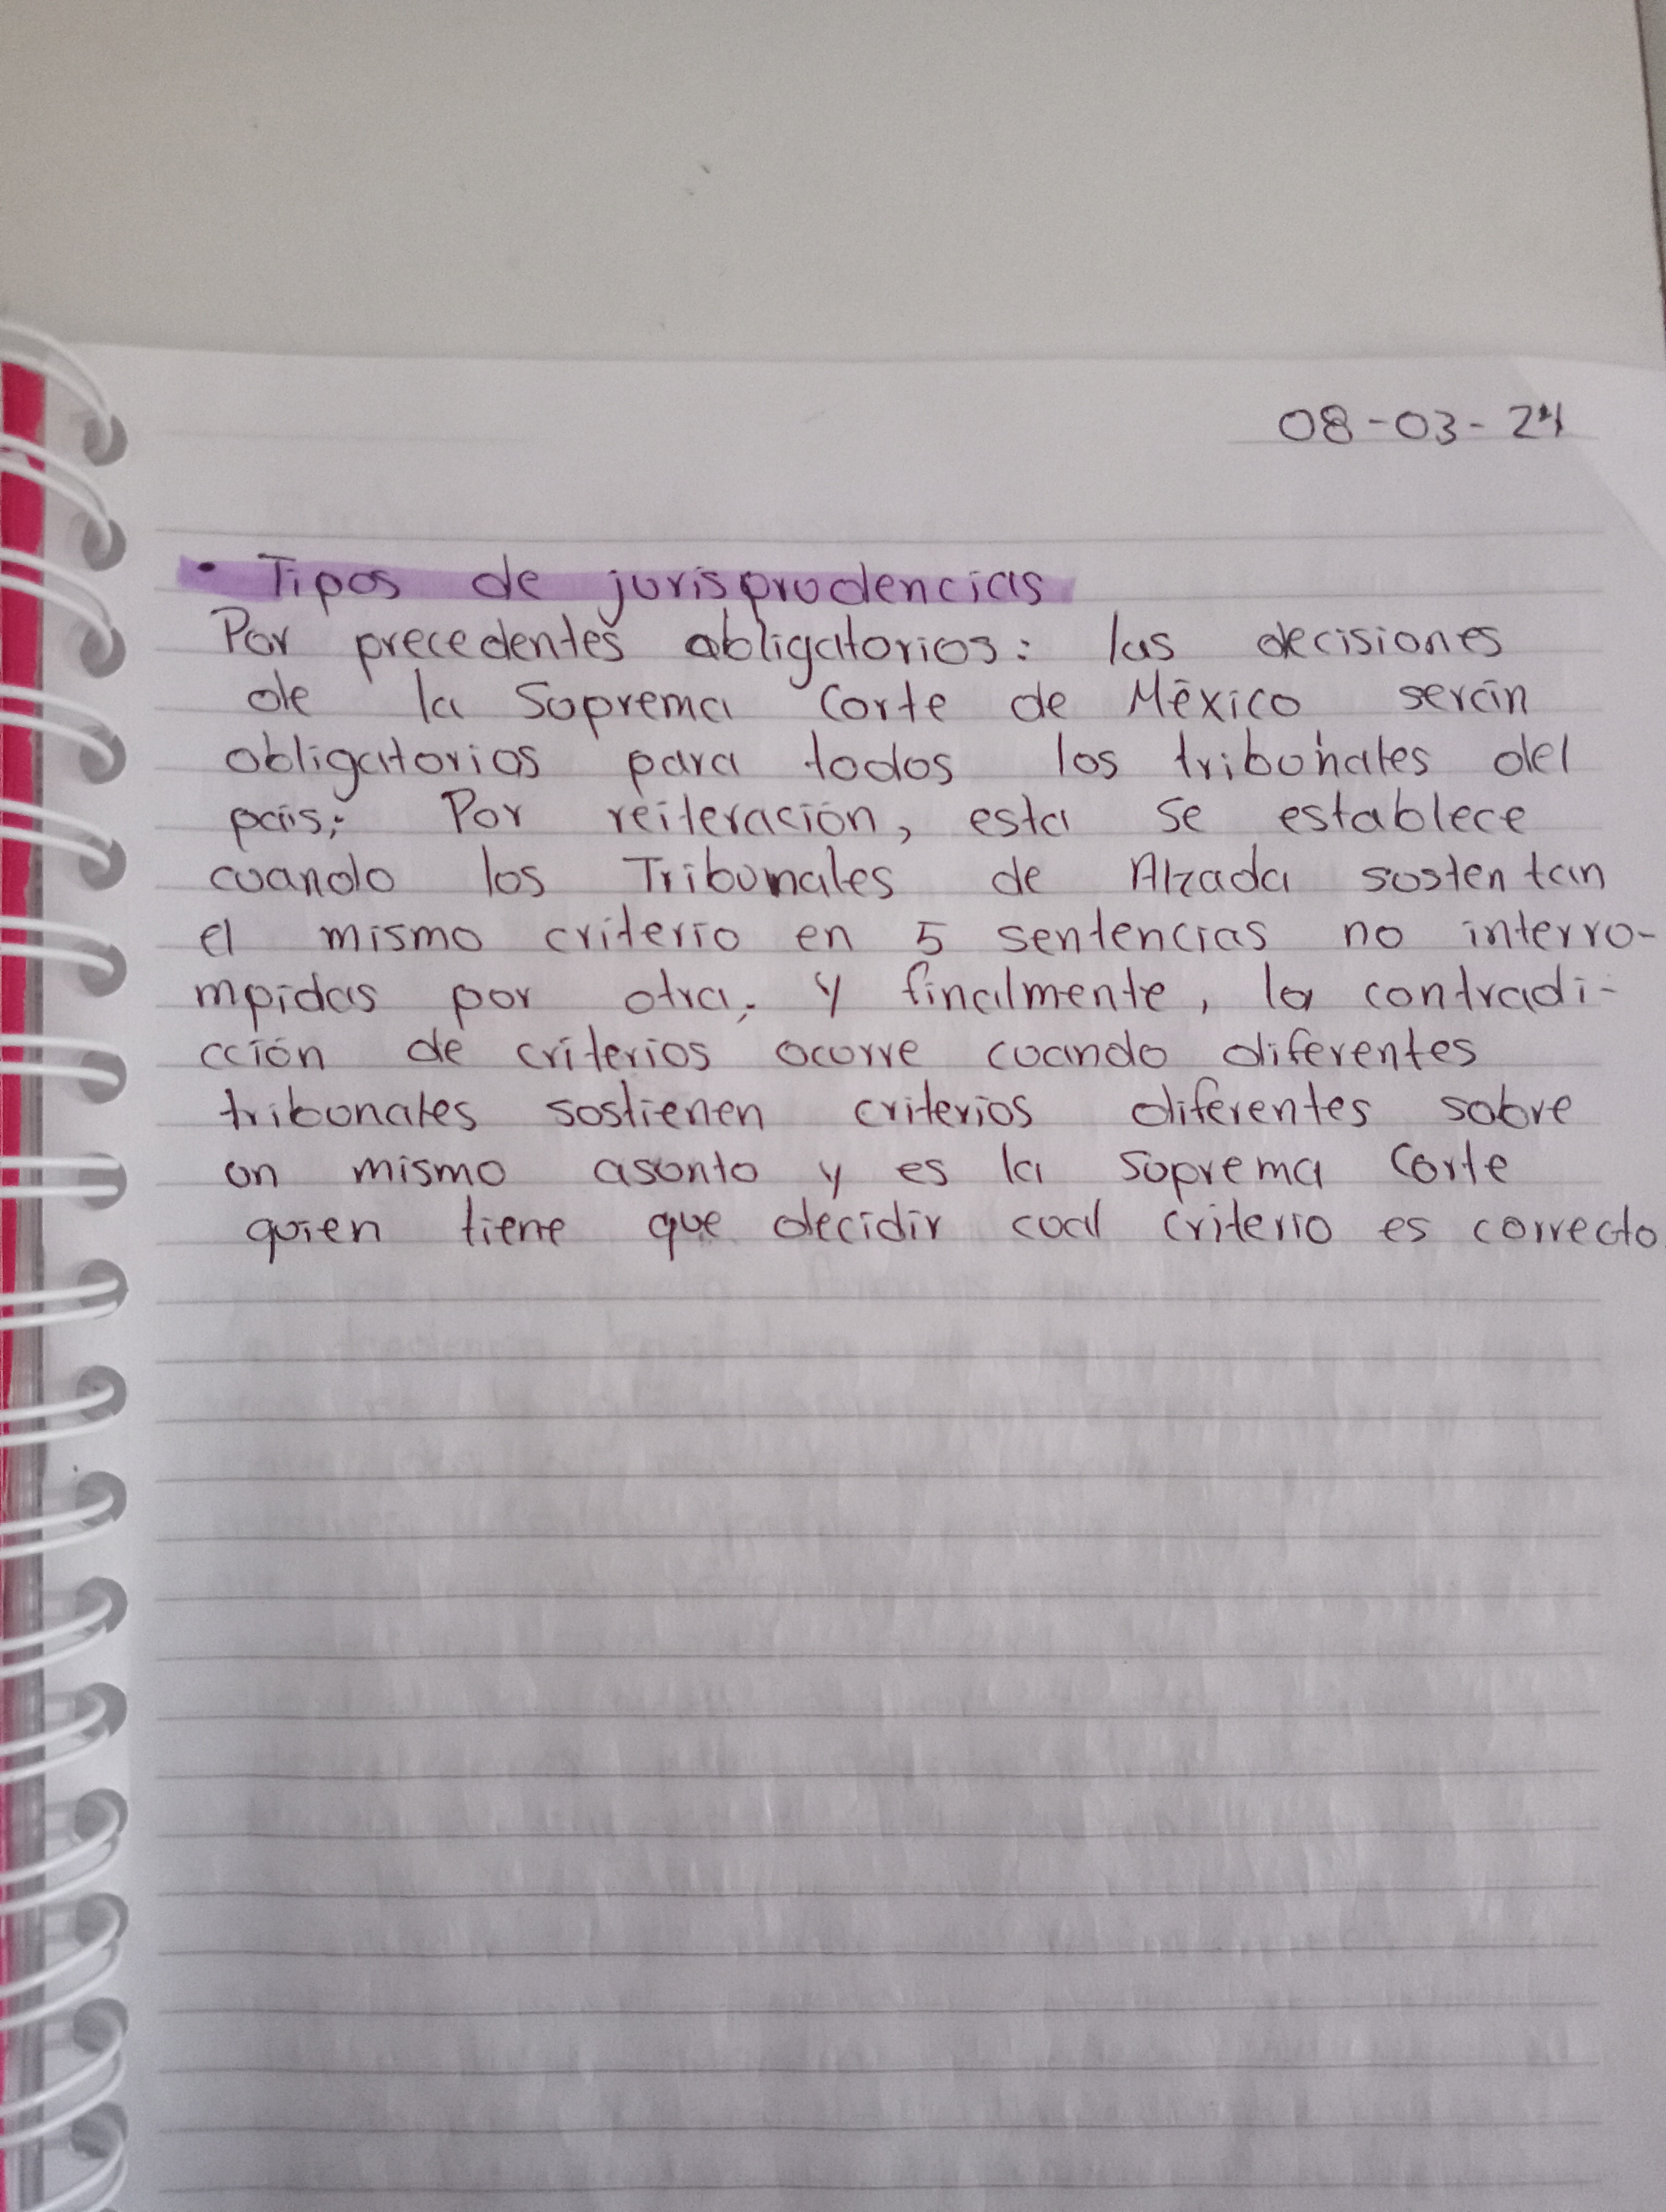 08-03-24
• Tipos de jurisprudencias
Por precedentes obligatorios: las decisiones
de la Suprema Corte de México serán
obligatorios para todos los tribunales del
país; Por reiteración, esta se establece
cuando los Tribunales de Alzada sostentan
el mismo criterio en 5 sentencias no interro-
mpidas por otra; y finalmente, la contradi-
cción de criterios ocurre cuando diferentes
tribunales sostienen criterios diferentes sobre
un mismo asunto y es la Suprema Corte
quien tiene que decidir cual criterio es correcto.